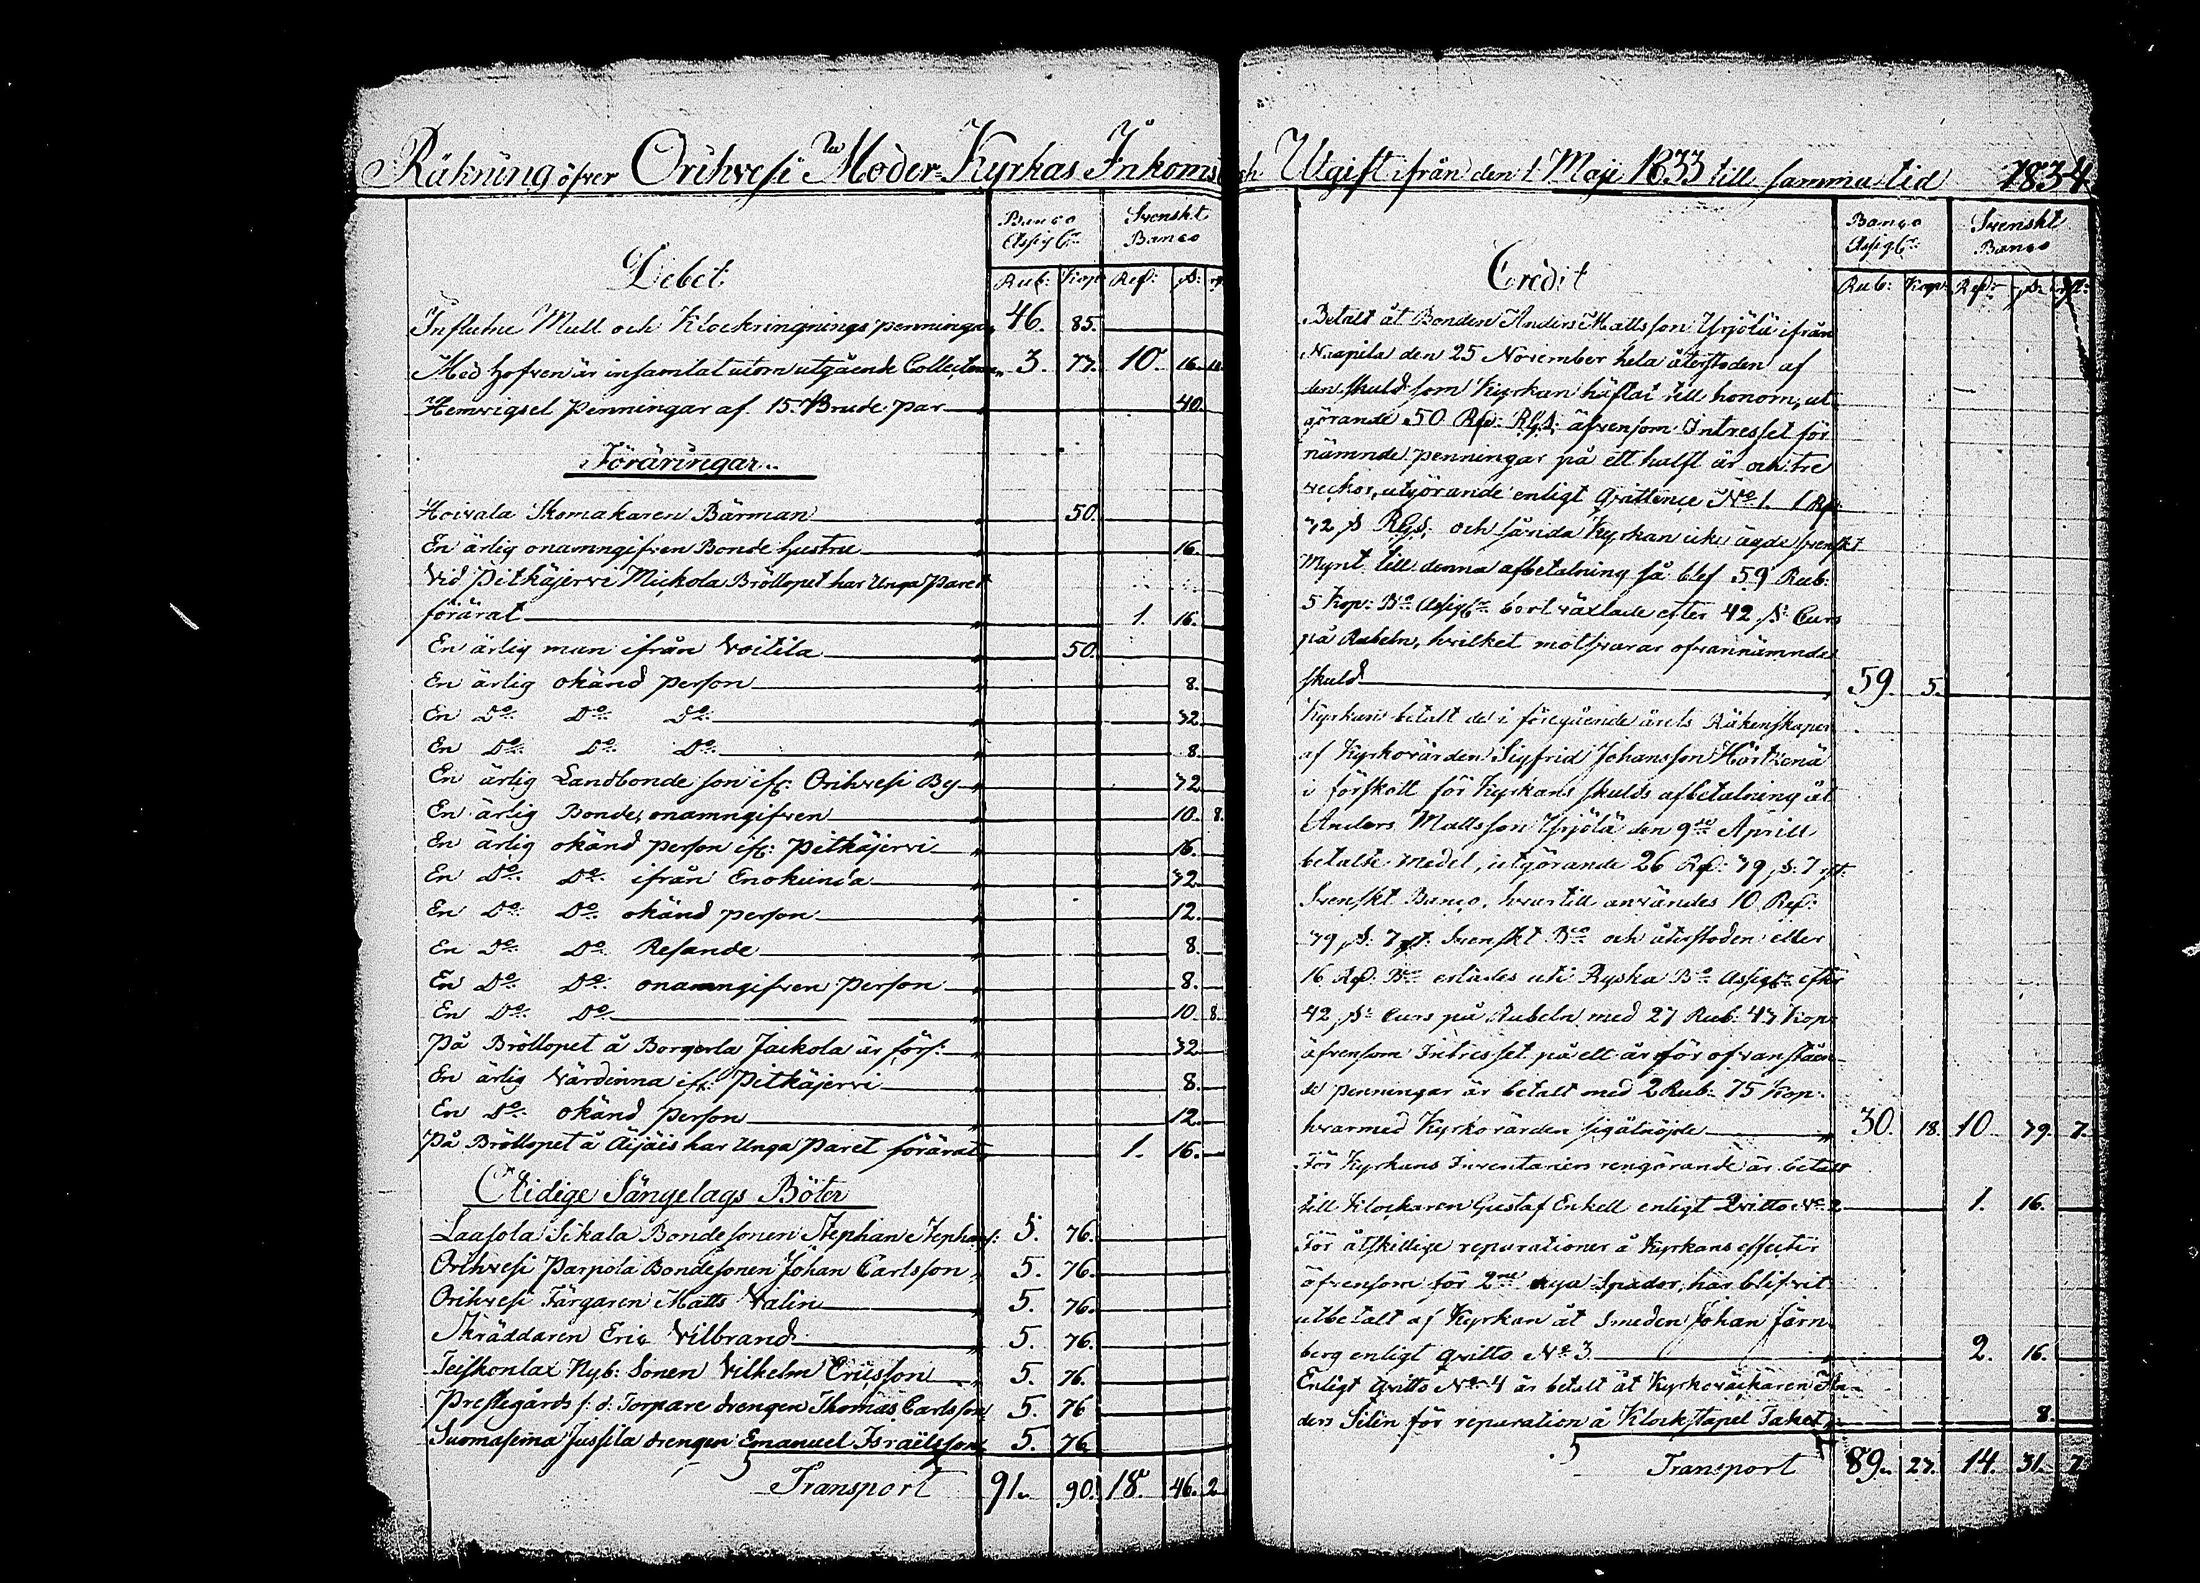 Räkning öfver Orihvesi Moder-Kyrkas Inkomst och Utgift ifrån den 1 Maji 1833 till samma tid 1834
Debet.
Banco Assigt:
Svenskt Banco
Rub: Kop: Rd: s: rs:
Influtne Mull och Klockringnings penningar 46. 85.
Med Hofven är insamlat utom utgående Collecterne 3. 77. 10. 16.
Hemvigsel Penningar af 15. Brude par 40.
Föräringar..
Hoivala Skomakaren Bärman 50.
En ärlig onamngifven Bonde hustru 16.
Vid Pitkäjervi Mickola Bröllopet har Unga Paret
förärat 1. 16.
En ärlig man ifrån Voitila 50.
En ärlig okänd person 8.
En Do: Do: Do: 32
En Do: Do: Do: 8.
En ärlig Landbonde son ifr: Orihvesi By 32
En ärlig Bonde, onamngifven 10. 8.
En ärlig okänd person ifr: Pitkäjervi 16.
En Do: Do: ifrån Enokunda 32
En Do: Do: okänd person 12.
En Do: Do: Resande 8.
En Do: Do: onamngifven Person 8.
En Do: Do: 10. 8.
På Bröllopet å Jackola är förs: 32
En ärlig Värdinna ifr: Pitkäjervi 8.
En Do: okänd Person 12.
På Bröllopet å Äijäis har Unga Paret förärat 1. 16.
Otidige Sängelags Böter
Laasola Sikala Bondesonen Stephan Stephans: 5. 76.
Orihvesi Parpola Bondesonen Johan Carlsson 5. 76.
Orihvesi Färgaren Matts Valin 5. 76.
Skräddaren Eric Vilbrand 5. 76.
Teiskonlax Nyb: Sonen Vilhelm Ericsson 5. 76.
Prestegårds f: d: Torpare drengen Thomas Carlsson 5. 76
Suomasema Jussila drengen Emanuel Israëlsson 5. 76
Transport 91. 90. 18. 46. 2
Credit
Banco Assigt:
Svenskt Banco
Rub: Kop: Rd: s: rst:
Betalt åt Bonden Anders Mattsson Yrjölä ifrån
Naapila den 25 November hela återstoden af
den skuld som Kyrkan häftat till honom, ut-
görande 50 Rd: RGs, äfvensom Intresset för
nämnde penningar på ett halft år och tre
veckor, utgörande enligt Qvittence No 1. 1 Rd:
32 s RGs; och såvida Kyrkan icke ägde svenskt
Mynt till denna afbetalning så blef 59 Rub:
5 Kop: Bco Assigt: bortväxlade efter 42 s: Curs
på Rubeln, hvilket motsvarar ofvannämnde
skuld 59. 5.
Kyrkan betalt de i föregående årets Räkenskaper
af Kyrkovärden Sigfrid Johansson Hörtkenä
i förskott för Kyrkans skulds afbetalning åt
Anders Mattsson Yrjölä den 9de Aprill
betalte medel, utgörande 26 Rd: 39 s: 7 rst:
Svenskt Banco, hvartill användes 10 Rd:
39 s: 7 rst: Svenskt Bco och återstoden eller
16 Rd: Bco erlades uti Ryska Bco Assigt: efter
42 s: Curs på Rubeln med 27 Rub: 43 Kop:
äfvensom Intresset på ett år för ofvanståen-
de penningar är betalt med 2 Rub: 75 Kop:
hvarmed Kyrkovärden sig åtnöjde 30. 18. 10. 39. 7.
För Kyrkans Inventariers rengörande är betalt
till Klockaren Gustaf Enkell enligt Qvitto No 2 1. 16.
För åtskillige reparationer å Kyrkans effecter
äfvensom för 2ne nya Spador, har blifvit
utbetalt af Kyrkan åt Smeden Johan Färn-
berg enligt qvitto No 3 2. 16.
Enligt qvitto No 4 är betalt åt Kyrkoväckaren An-
ders Silin för reparation å Klockstapel Taket 8.
Transport 89. 23. 14. 31. 7